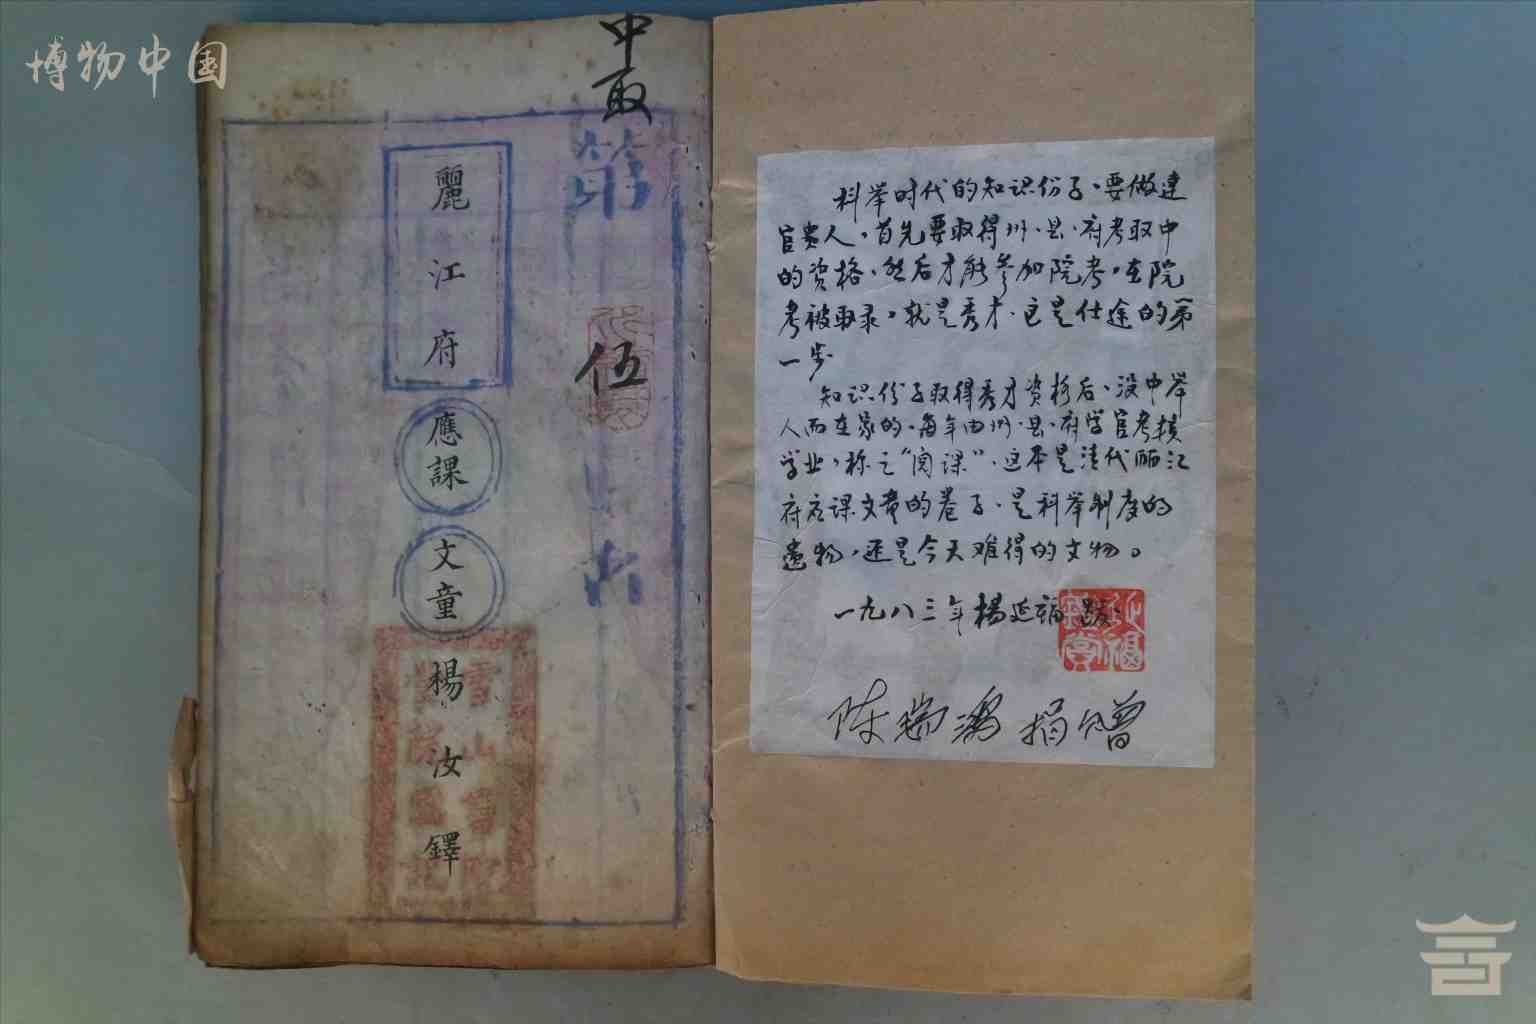 博物中国
中取
第
伍
麗江府
應課
文童
楊汝鐸
雪山書院
科举时代的知识份子、要做达
官贵人，首先要取得州、县、府考取中
的资格、然后才能参加院考，在院
考被取录，就是秀才、这是仕途的第
一步
知识份子取得秀才资格后、没中举
人而在家的、每年由州、县、府学官考核
学业，称之“阅课”、这本是清代丽江
府应课文童的卷子、是科举制度的
遗物，还是今天难得的文物。
一九八三年楊延福 跋
陈瑞鸿捐赠